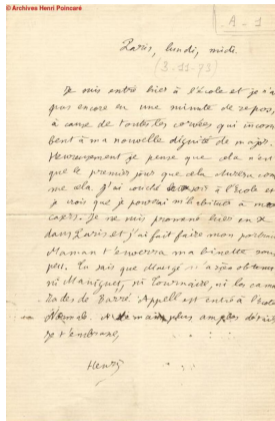 © Archives Henri Poincaré
A - 1
Paris, lundi, midi.
(3-11-73)
Je suis entré hier à l'École et je n'ai
pas encore eu une minute de repos,
à cause de toutes les corvées qui incom
bent à ma nouvelle dignité de major.
Heureusement je pense que cela n'est
que le premier jour que cela durera com
me cela. J'ai couché hier soir à l'école et
je crois que je pourrai m'habituer à mon
casers. Je me suis promené hier en
dans Paris et j'ai fait faire mon portrait
Maman t'enverra ma binette sous
peu. Tu sais que ni
ni Tournaire, ni les cama
rades de Barré. Appell est entré à l'école
Normale. A demain plus amples détails
Je t'embrasse,
Henri